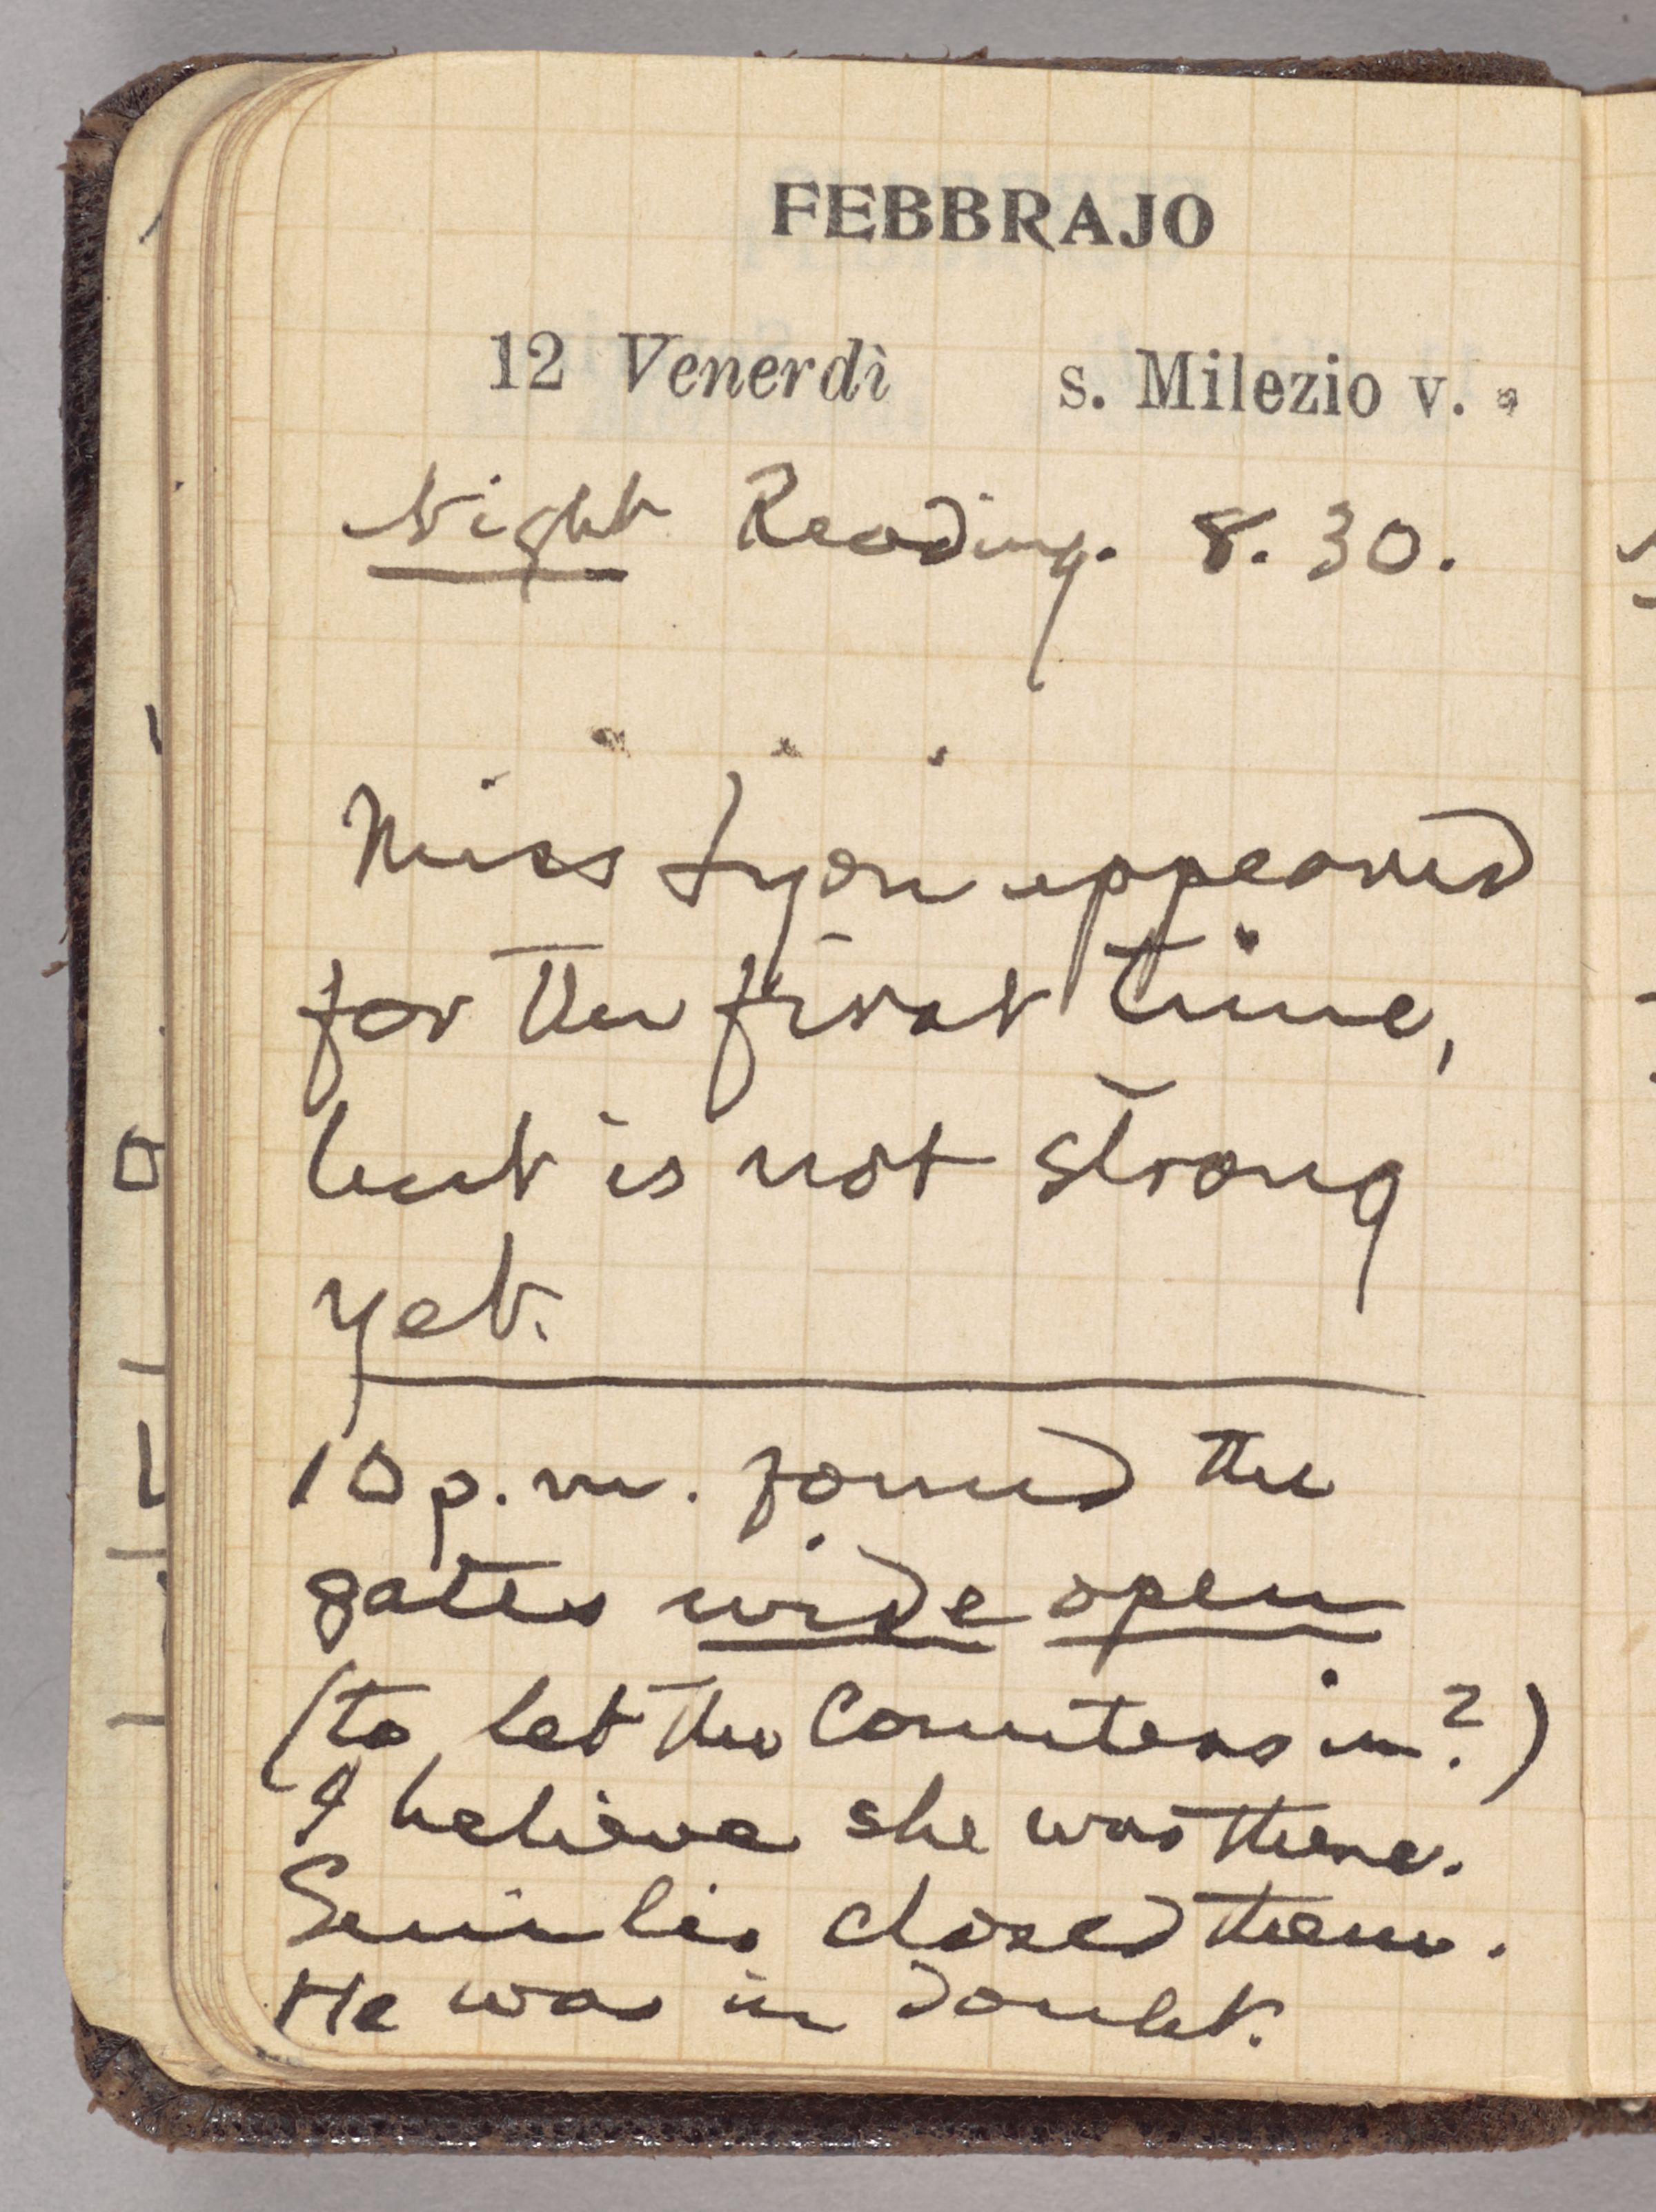 FEBBRAJO
12 Venerdì s. Milezio v.
Night Reading. 8.30.
Miss Lyon appeared
for the first time,
but is not strong
yet.
10 p.m. found the
gates wide open
(to let the Countess in?)
I believe she was there.
closed them.
He was in doubt.